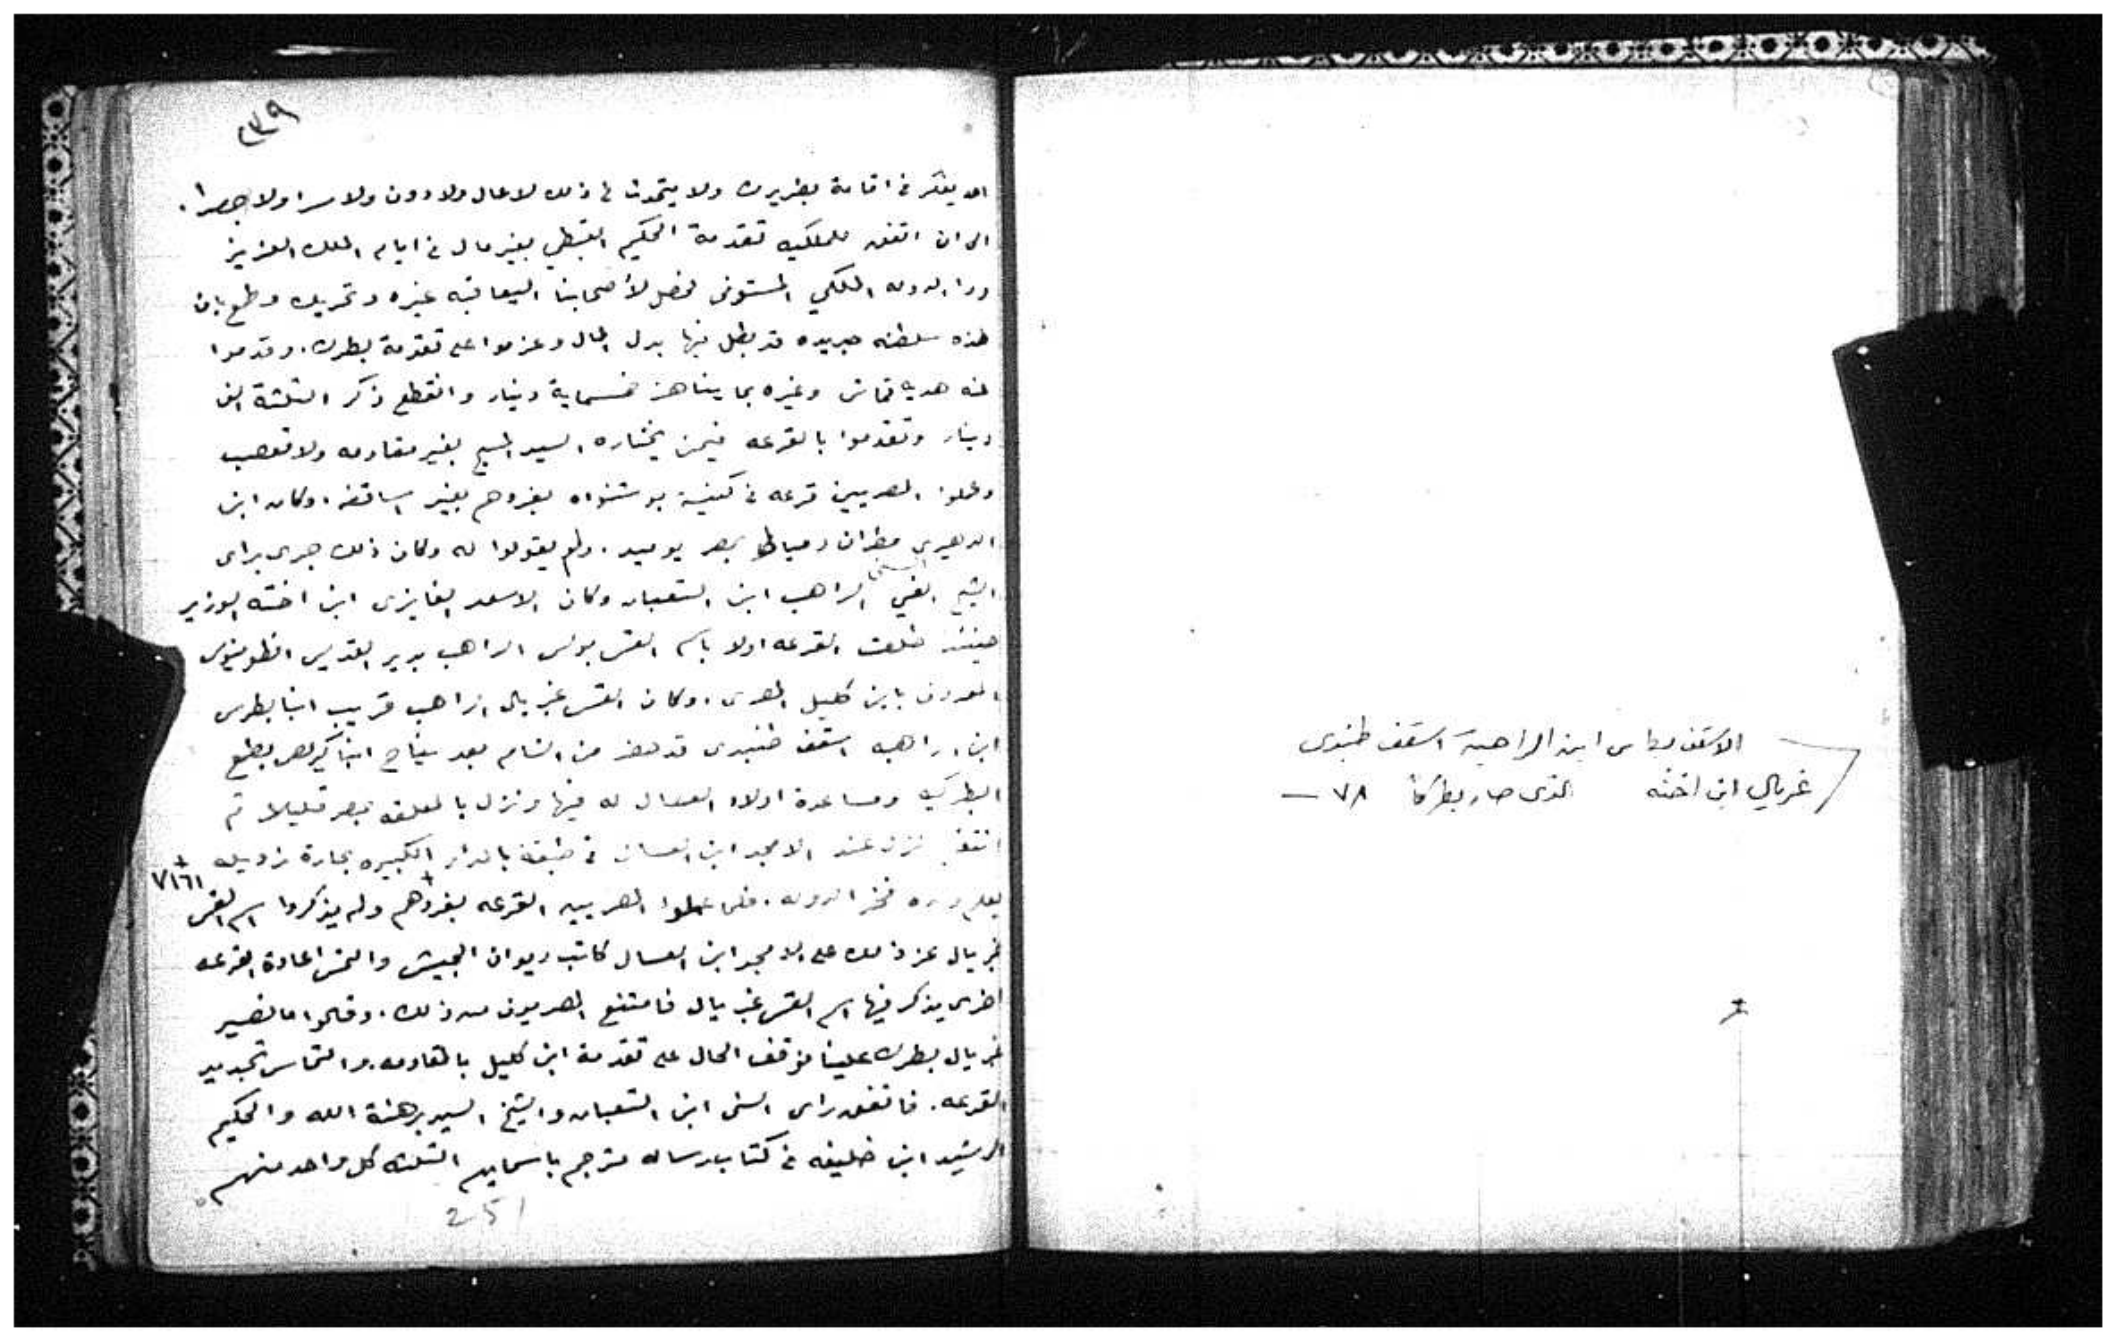 ٢٣٩
احد يفكر فى اقامة بطريرك ولا يتحدث فى ذلك لا عال ولا دون ولا سرا ولا جهرا .
الى ان اتفق للملكيه تقدمة الحكيم القبطي بغير مال فى ايام الملك العزيز
الدوله الملكي المستوفى فحصل لأصحابنا اليعاقبه غيره وتحريك وطمع بان
هذه سلطنه جديده قد بطل فيها بدل المال وعزموا على تقدمة بطرك . وقدموا
عنه هديه قماش وغيره بما يناهز خمسماية دينار وانقطع ذكر الثلثة الف
دينار وتقدموا بالقرعه فيمن يختاره السيد المسيح بغير مقاومه ولا تعصب
وعملوا المصريين قرعه فى كنيسة بو شنوده بفردهم بغير اساقفه . وكان ابن
الدهيرى مطران دمياط بمصر يوميد . ولم يقولوا له وكان ذلك جرى براى
الشيخ السنى الراهب ابن الثعبان وكان الاسعد الفايزى ابن اخته الوزير
حينئذ فطلعت القرعه اولا باسم القس بولس الراهب بدير القديس انطونيوس
المعروف بابن كليل المصرى . وكان القس غبريال الراهب قريب انبا بطرس
ابن الراهبه اسقف طنبدى قد حضر من الشام بعد نياح انبا كيرلص بطمع
البطركيه ومساعدة اولاد العسال له فيها ونزل بالمعلقه بمصر قليلا ثم
انتقل نزل عند الامجد ابن العسال فى طبقة بالدار الكبيره بحارة زويله
يعلم ولده فخر الدوله . فلما عملوا المصريين القرعه بفردهم ولم يذكروا اسم القس
٧١٦١
غبريال عز ذلك على الامجد ابن العسال كاتب ديوان الجيش والتمس اعادة القرعه
اخرى يذكر فيها اسم القس غبريال فامتنع المصريون من ذلك . وقالوا ما نصير
غبريال بطرك علينا فوقف الحال على تقدمة ابن كليل بالمقاومه والتماس تجديد
القرعه . فاتفق راى السنى ابن الثعبان والشيخ السديد هبة الله والحكيم
الرشيد ابن خليفه فى كتاب رساله مترجم باسمايهم الثلثه كل واحد منهم
251
الاسقف بطرس ابن الراهبة اسقف طنبدى
غبريال ابن اخته الذى صار بطركا ٧٨ —